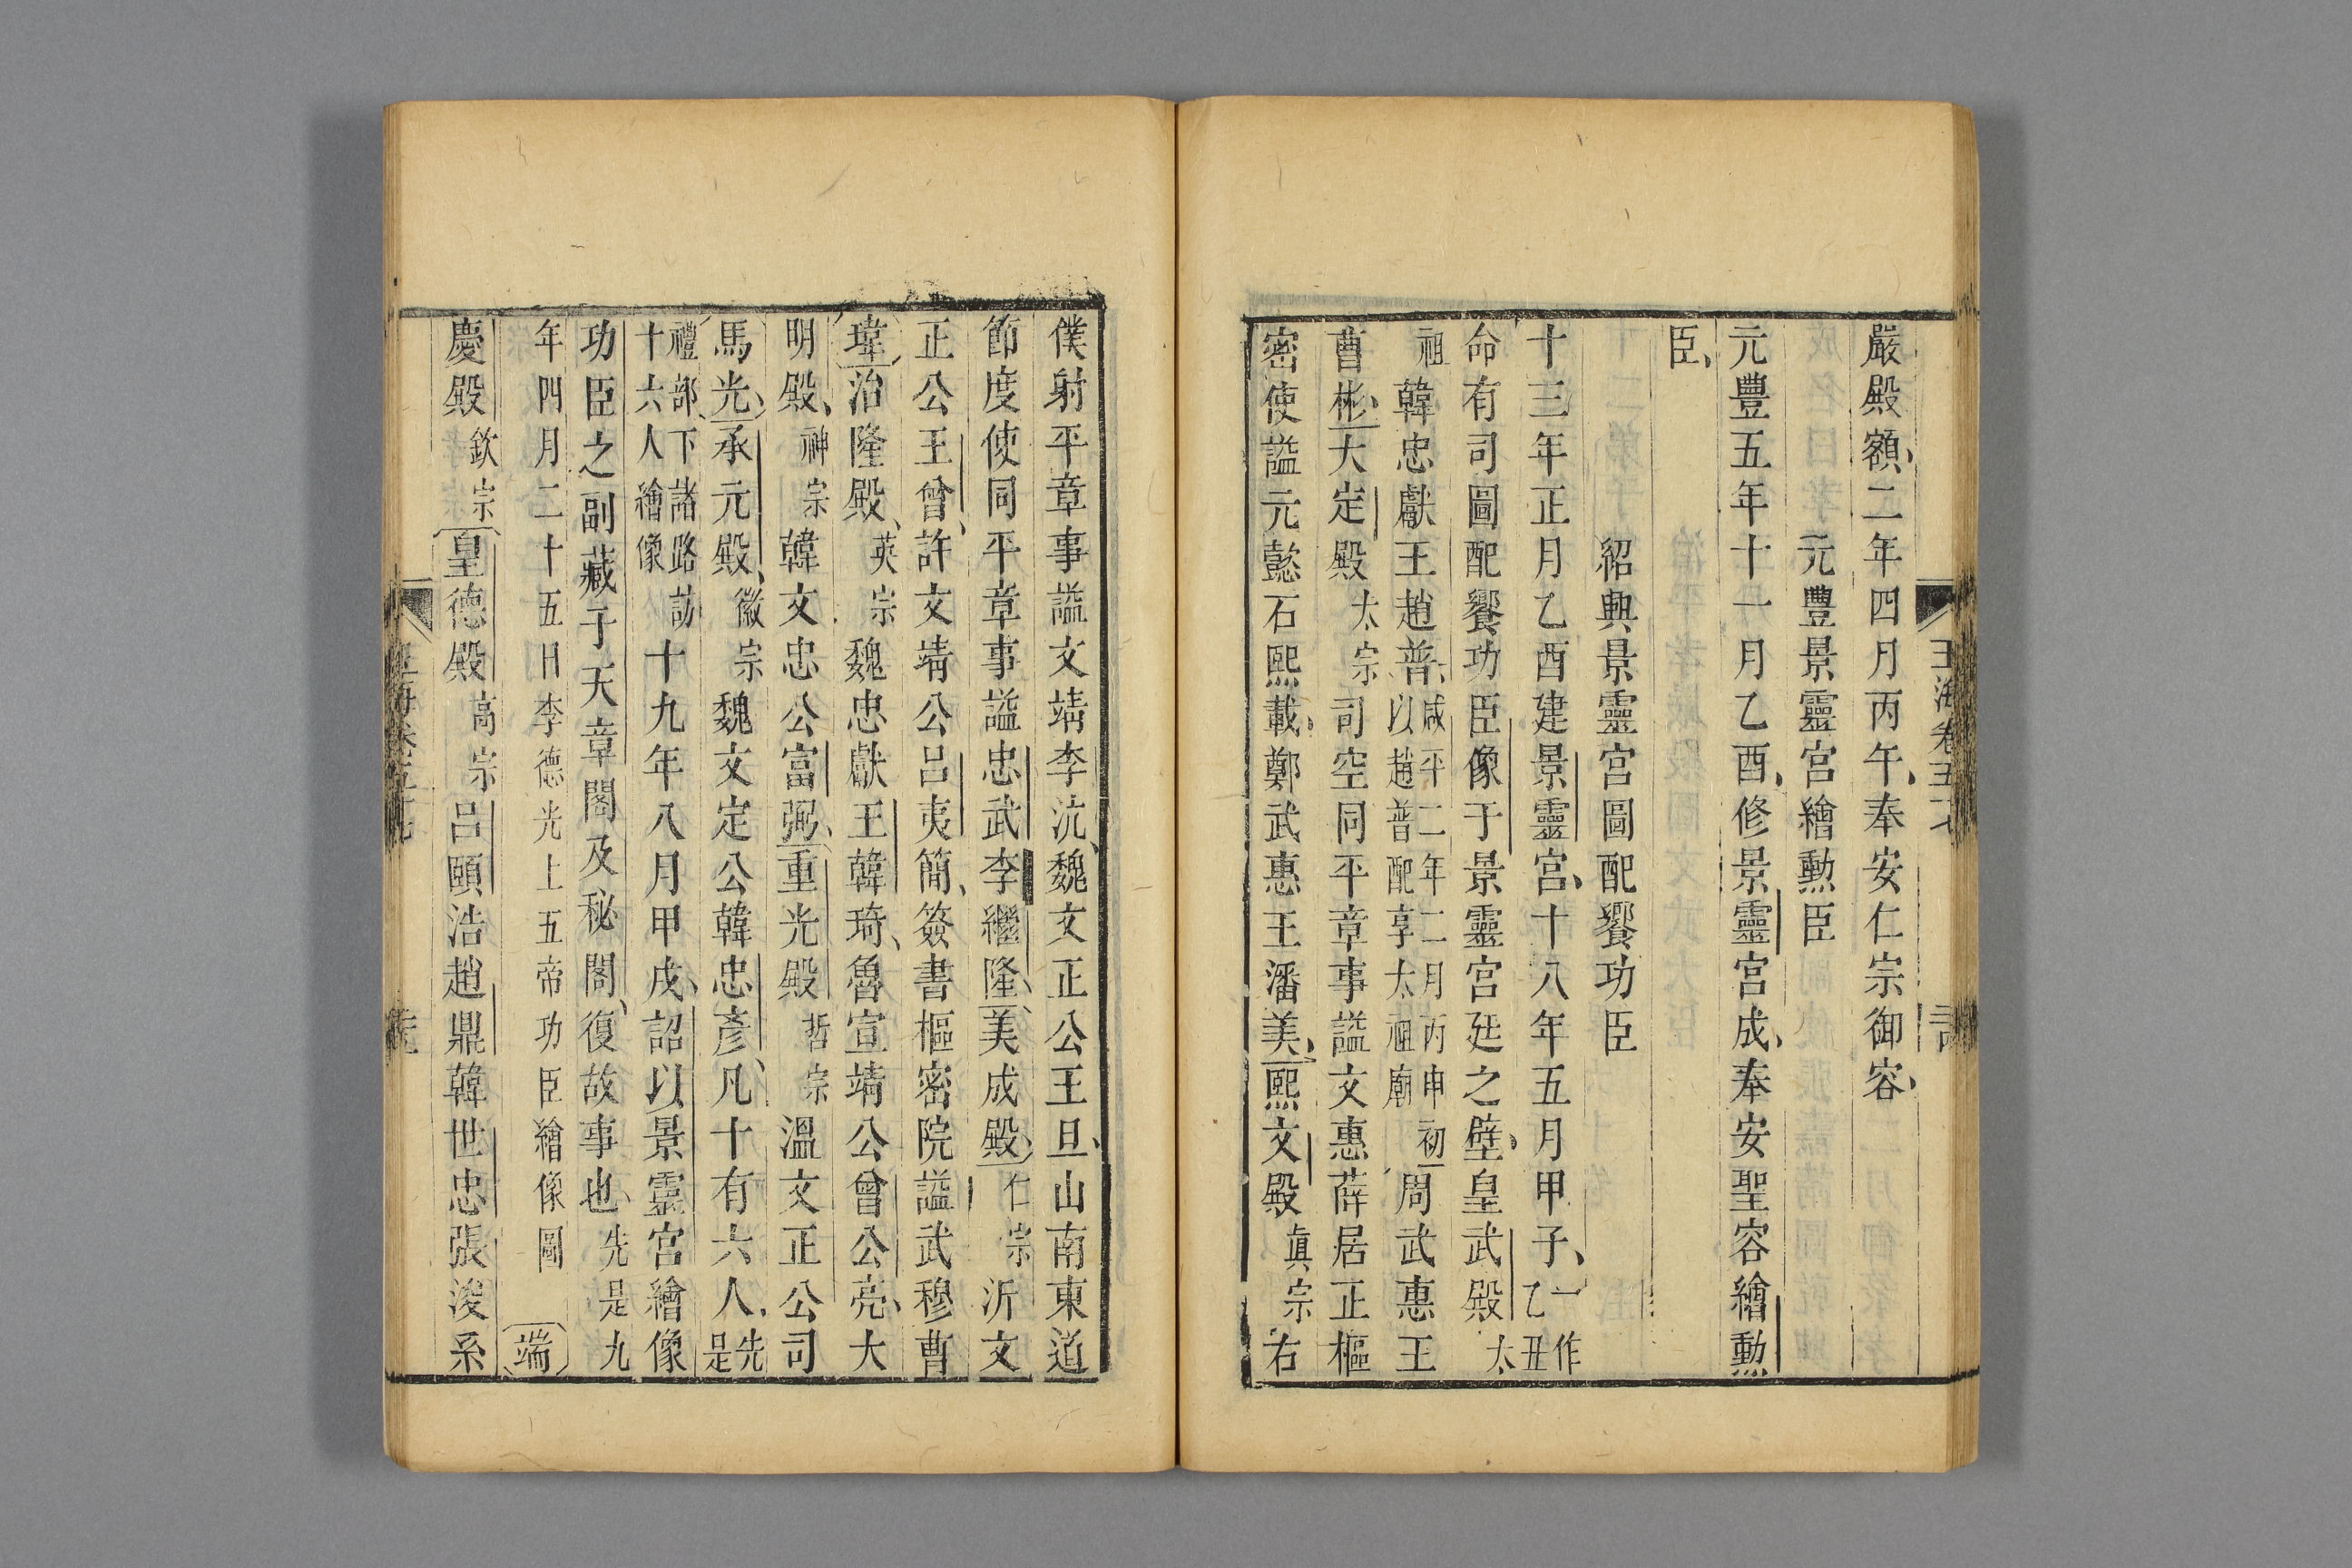 嚴殿額二年四月丙午奉安仁宗御容
元豐景靈宮繪勳臣
元豐五年十一月乙酉修景靈宮成奉安聖容繪勳
臣
紹興景靈宮圖配饗功臣
十三年正月乙酉建景靈宮十八年五月甲子一作乙丑
命有司圖配饗功臣像于景靈宮廷之壁皇武殿太
祖韓忠獻王趙普咸平二年二月丙申初以趙普配享太祖廟周武惠王
曹彬大定殿太宗司空同平章事謚文惠薛居正樞
密使謚元懿石熙載鄭武惠王潘美熙文殿眞宗右
僕射平章事謚文靖李沆魏文正公王旦山南東道
節度使同平章事謚忠武李繼隆美成殿仁宗沂文
正公王曾許文靖公呂夷簡簽書樞密院謚武穆曹
瑋治隆殿英宗魏忠獻王韓琦魯宣靖公曾公亮大
明殿神宗韓文忠公富弼重光殿哲宗溫文正公司
馬光承元殿徽宗魏文定公韓忠彥凡十有六人先是
禮部下諸路訪十六人繪像十九年八月甲戌詔以景靈宮繪像
功臣之副藏于天章閣及秘閣復故事也先是九
年四月二十五日李德光上五帝功臣繪像圖端
慶殿欽宗皇德殿高宗呂頤浩趙鼎韓世忠張浚系